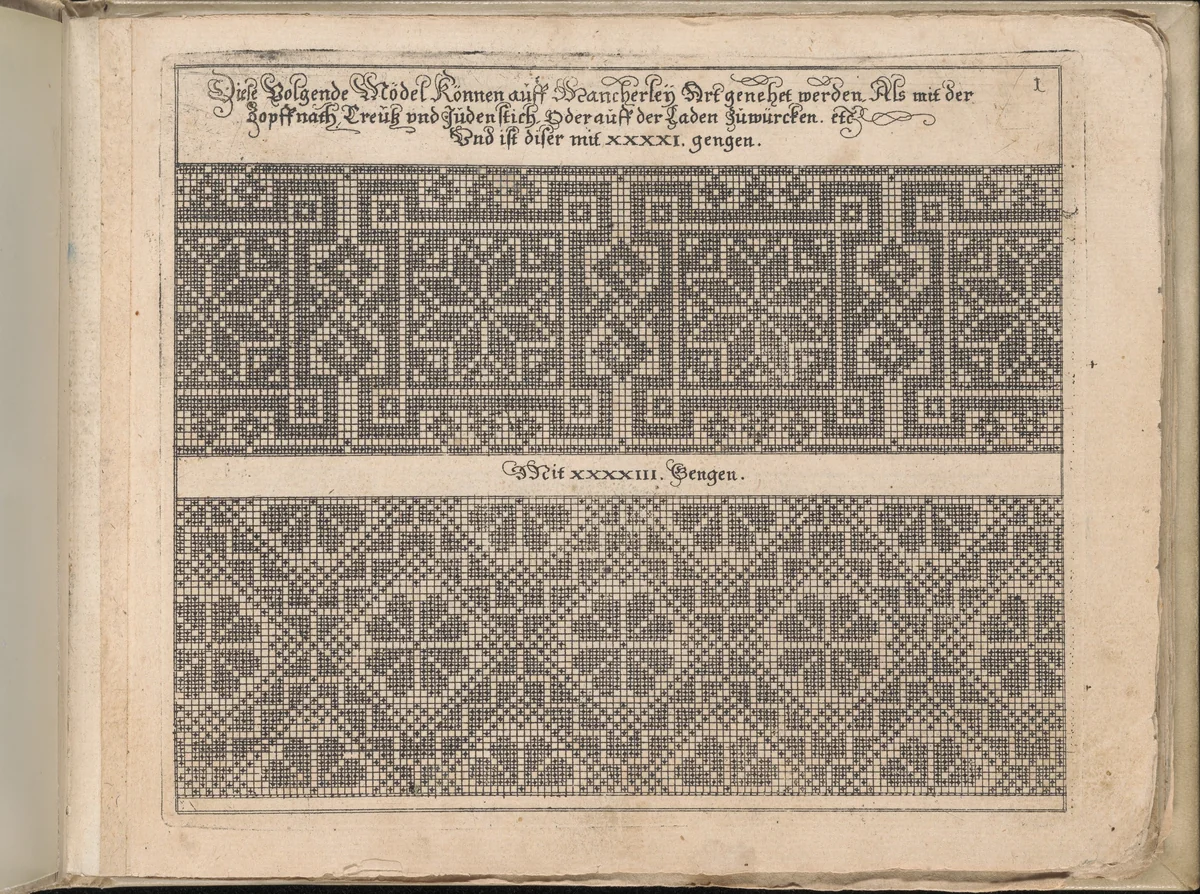 Diese Volgende Mödel Können auff Mancherley Art genehet werden. Als mit der
1
Zopffnath, Creütz vnd Jüdenstich. Oder auff der Laden zuwürcken. etc
Vnd ist diser mit XXXXI. gengen.
Mit XXXXIII. Gengen.